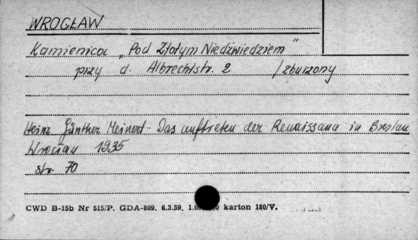 WROCŁAW
Kamienica „Pod Złotym Niedźwiedziem"
przy d. Albrechtstr. 2 /zburzony
Heinz Günther Meinert - Das auftreten der Renaissana in Breslau
Wrocław 1935
str. 70
CWD B-15b Nr 515/P. GDA-809. 6.3.59. karton 180/V.